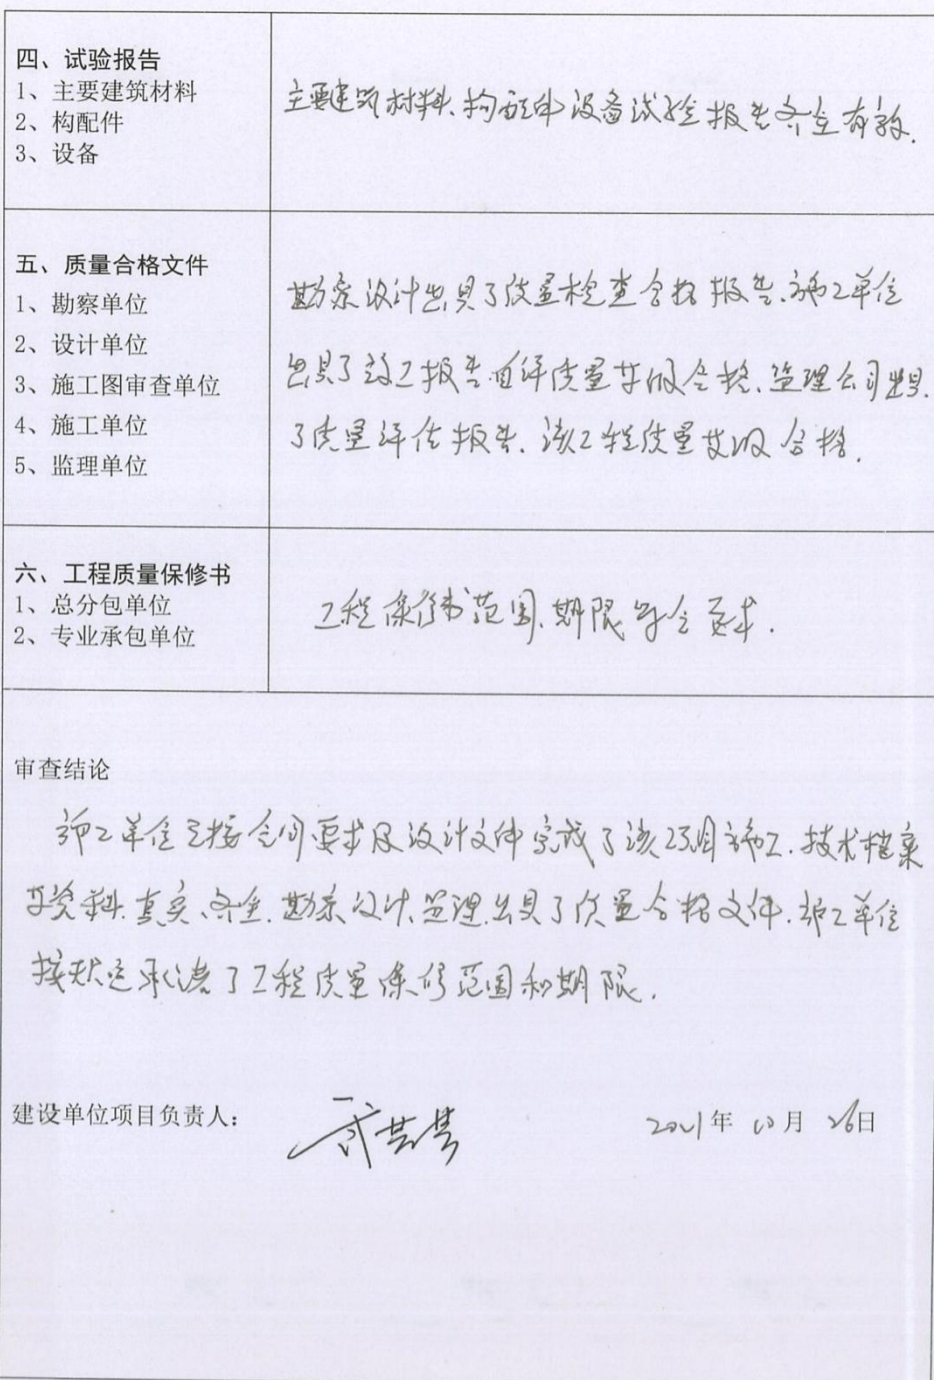 四、试验报告
1、主要建筑材料
2、构配件
3、设备
主要建筑材料、构配件、设备试验报告齐全有效.
五、质量合格文件
1、勘察单位
2、设计单位
3、施工图审查单位
4、施工单位
5、监理单位
勘察设计出具了质量检查合格报告、施工单位
出具了竣工报告自评质量等级合格、监理公司出具
了质量评估报告、该工程质量等级合格.
六、工程质量保修书
1、总分包单位
2、专业承包单位
工程保修书范围、期限符合要求.
审查结论
施工单位已按合同要求及设计文件完成了该项目施工、技术档案
及资料真实、齐全、勘察、设计、监理出具了质量合格文件、施工单位
按规定承诺了工程质量保修范围和期限.
建设单位项目负责人:
2021年 10月 26日